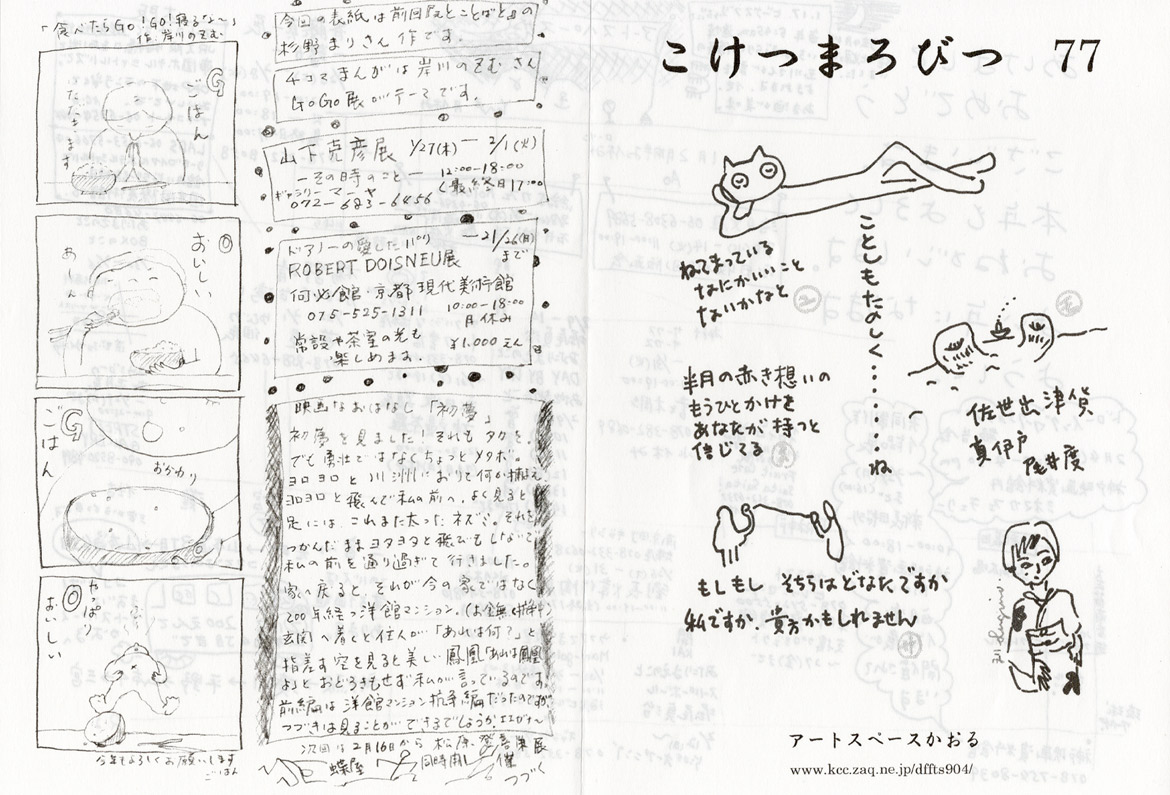 こけつまろびつ 77
ことしもたのしく・・・・・・・ね
ねてまっている
なにかいいこと
ないかなと
半月の赤き想いの
もうひとかけを
あなたが持つと
信じてる
佐世出 津貨
真伊戸
尾井度
もしもし そちらはどなたですか
私ですか、貴方かもしれません
アートスペースかおる
www.kcc.zaq.ne.jp/dffts904/
「食べたらGo!Go!寝るな〜」
作 岸川のえむ
ごはん
いただきます
おいしい
あーん
ごはん
おかわり
やっぱり
おいしい
今年もよろしくお願いします
ごはん
今回の表紙は前回『えとことばと』の
杉野まりさん作です。
4コマまんがは岸川のえむさん
GoGo展がテーマです。
山下克彦展 1/27(木)ー2/1(火)
ーその時のことー 12:00-18:00
ギャラリーマーヤ (最終日17:00
072-683-6456
ドアノーの愛したパリ ー21/26(日)
ROBERT DOISNEU展 まで
何必館・京都現代美術館
075-525-1311 10:00-18:00
月休み
常設や茶室の光も ¥1.000
楽しめます。
映画なおはなし「初夢」
初夢を見ました!それもタカを。
でも勇壮ではなくちょっとメタボ。
ヨロヨロと川洲におりて何か捕え
ヨロヨロと飛んで私の前へ。よく見ると
足には、これまた太ったネズミ。それを
つかんだままヨタヨタと飛びもしないで
私の前を通り過ぎて行きました。
家へ戻ると、それが今の家ではなく
200年経つ洋館マンション。
玄関へ着くと住人が「あれは何?」と
指差す空を見ると美しい鳳凰「あれは鳳凰
よ」とおどろきもせず私が言っているのです。
前編は洋館マンション抗争編だったのですが
つづきは見ることができるでしょうか
次回は2月16日から松原
蝶屋 同時開催
つづく